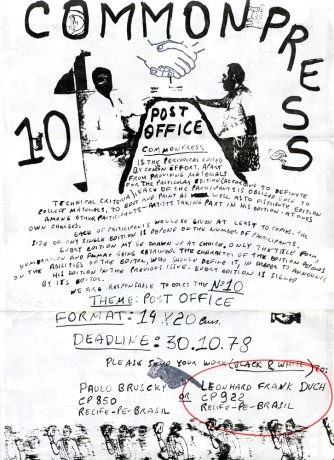 COMMONPRESS
10
POST
OFFICE
COMMONPRESS
IS THE PERIODICAL EDITED
BY COMMON EFFORT. APART
FROM PROVIDING MATERIALS
FOR THE PARTICULAR EDITION (ACCORDING TO DEFINITE
TECHNICAL CRITERIA) EACH OF THE PARTICIPANTS IS OBLIGED TO
COLLECT MATERIALS, TO EDIT AND PRINT AS WELL AS TO DISTRIBUTE EDITION
AMONG OTHER PARTICIPANTS - ARTISTS TAKING PART IN HIS EDITION - AT ONE'S
OWN CHARGES.
EACH OF PARTICIPANTS WOULD BE GIVEN AT LEAST TO COPIES. THE
SIZE OF ANY SINGLE EDITION IS DEPEND ON THE NUMBER OF PARTICIPANTS
EVERY EDITION MY BE DRAWN UP AT CHOICE, ONLY THE TITLE FORM,
NUMERATION AND FORMAT BEING RETAINED. THE CHARACTER OF THE EDITION DEPENDS
ON THE ABILITIES OF THE EDITOR, WHO SHOULD DEFINE IT, IN ORDER TO ANNOUNCE
HIS EDITION IN THE PREVIOUS ISSUE. EVERY EDITION IS SIGNED
BY IT'S EDITOR.
WE ARE RESPONSABLE TO EDICT THE Nº10
THEME: POST OFFICE
FORMAT: 14 X 20 Cms.
DEADLINE: 30.10.78
PLEASE SEND YOUR WORK (BLACK & WHITE) TO:
PAULO BRUSCKY
CP 850
RECIFE-PE-BRASIL
OR
LEONHARD FRANK DUCH
CP 922
RECIFE-PE-BRASIL